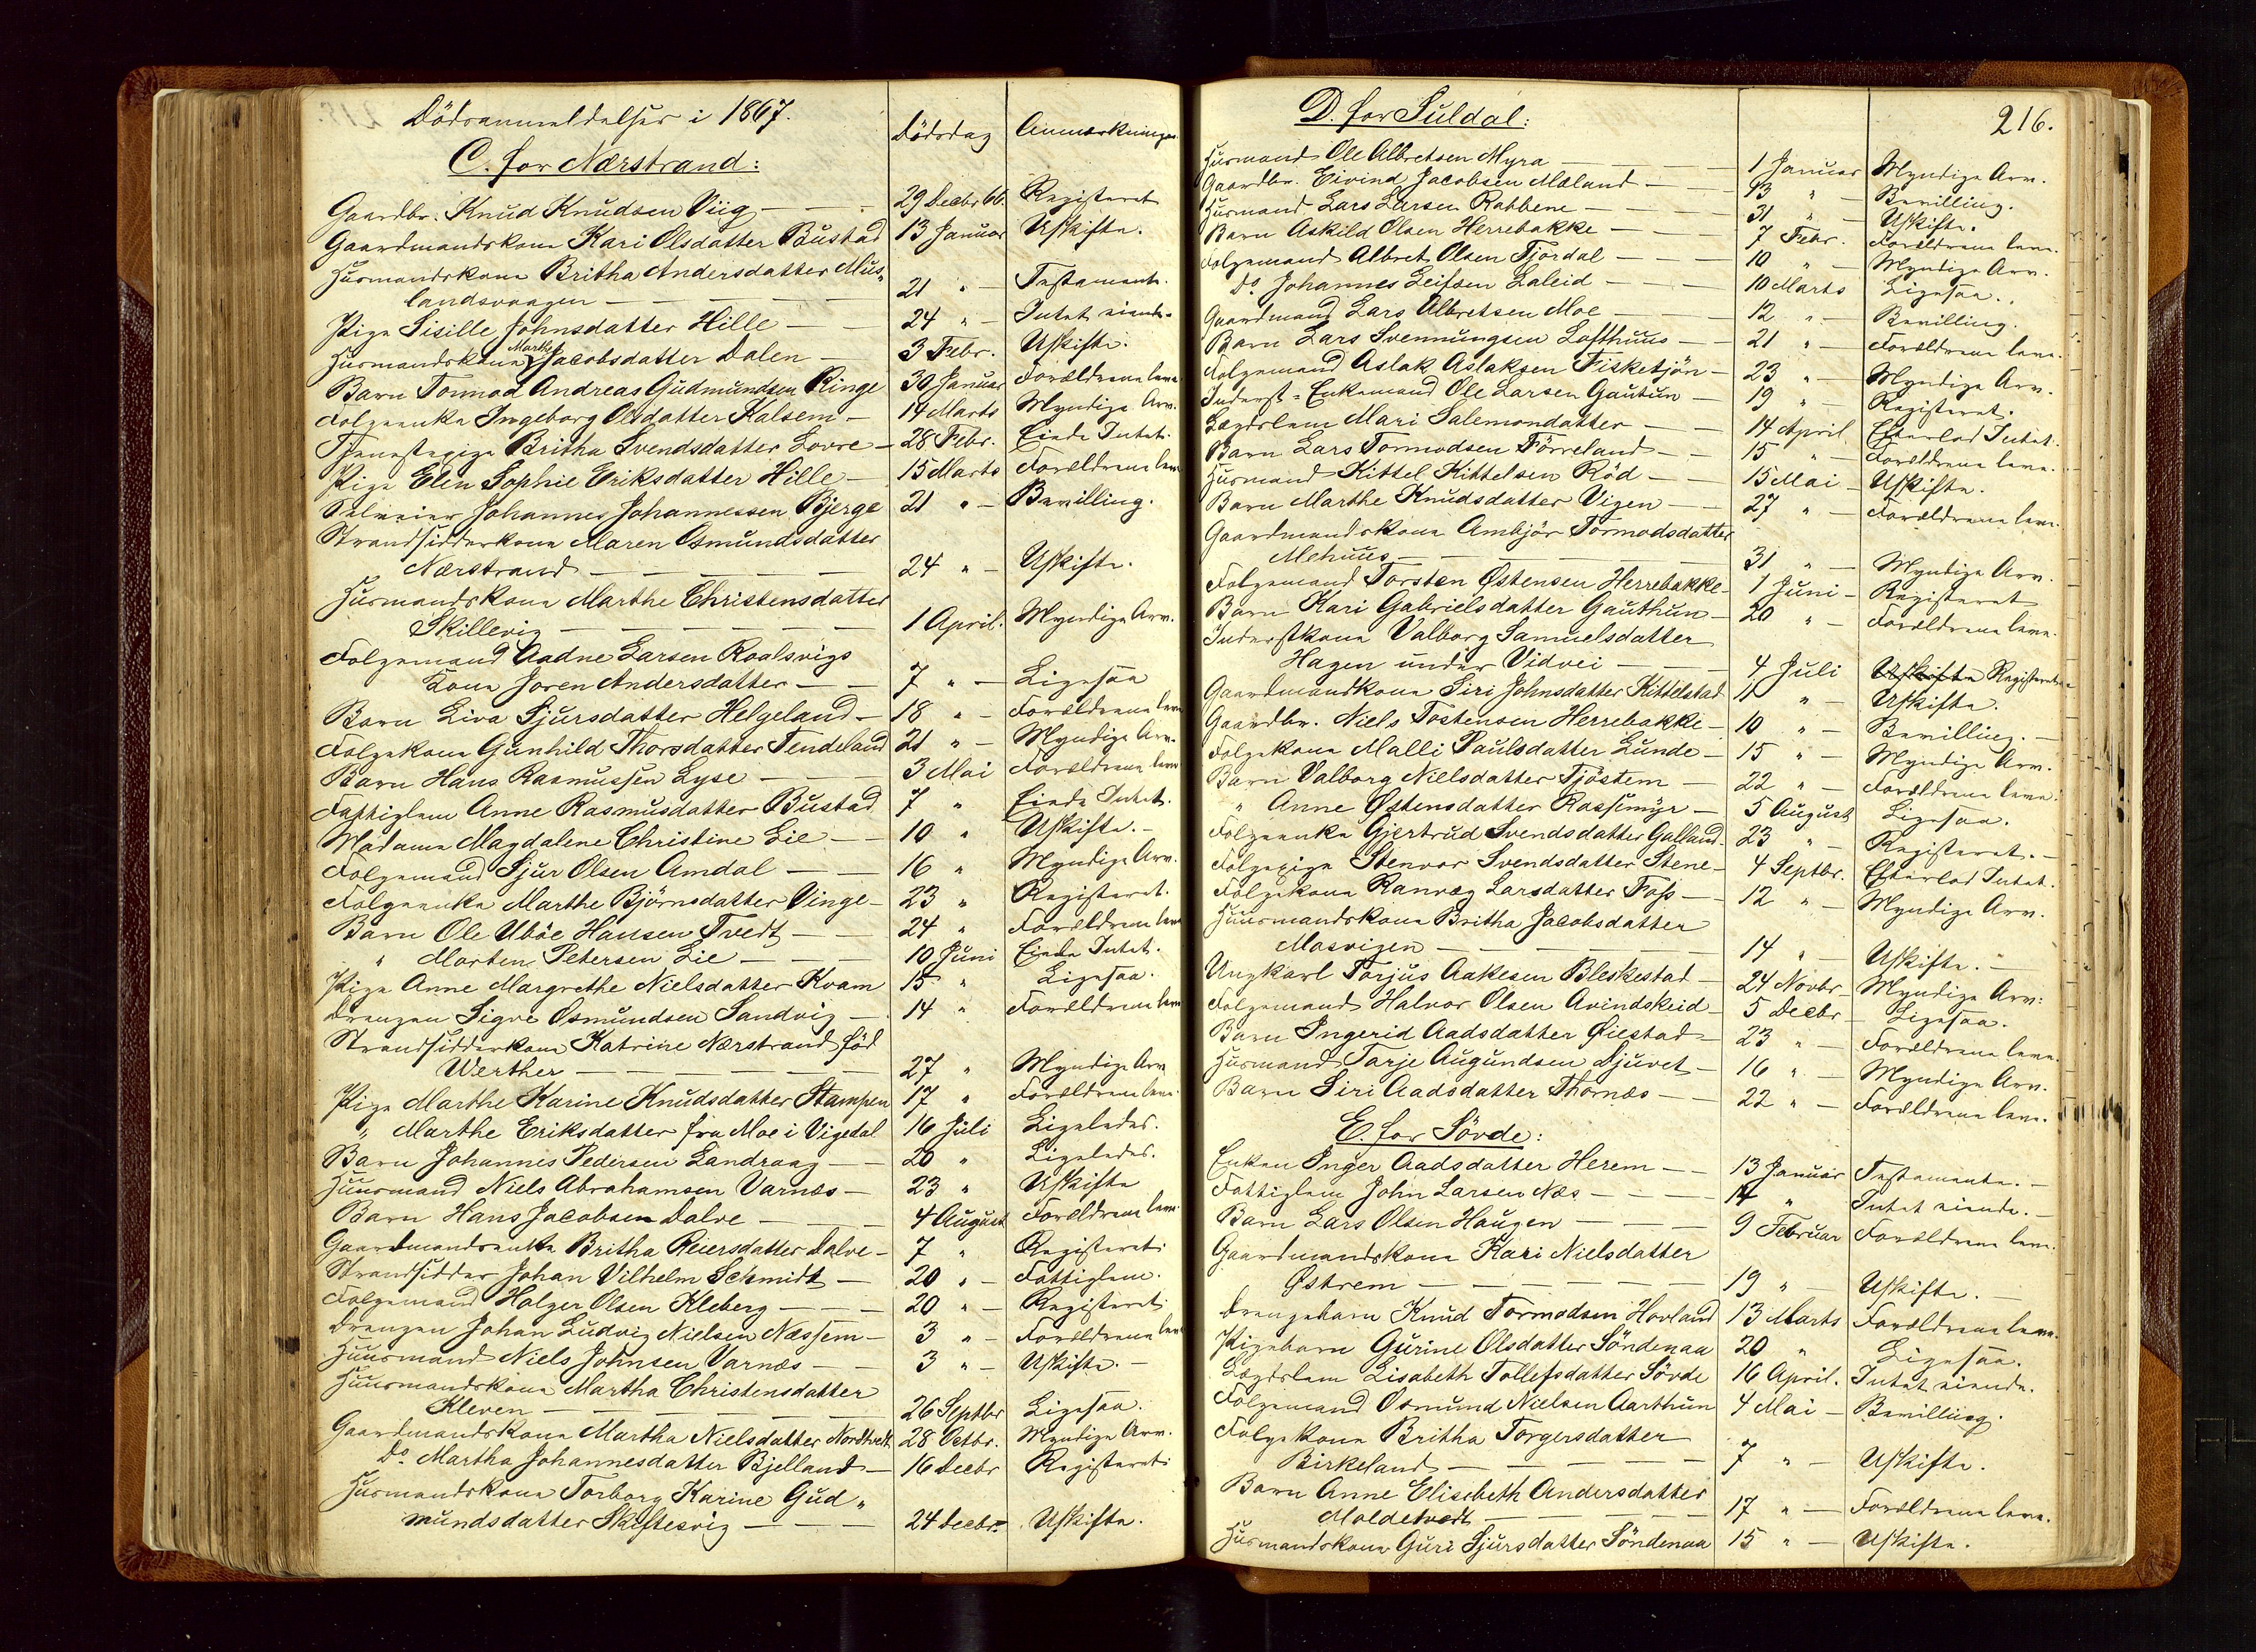 Dödsanmeldelser i 1867.
Dödsdag
Anmærkninger
C. for Nærstrand:
Gaardbr. Knud Knudsen Viig — 29 Decbr 66. Registeret
Gaardmandskone Kari Olsdatter Bustad 13 Januar Uskifte.
Husmandskone Britha Andersdatter Mus„
landsvaagen — 21 " — Testamente.
Pige Sisille Johnsdatter Hille — 24 " — Intet eiende.
Husmandskone Marthe Jacobsdatter Dalen — 3 Febr. Uskifte.
Barn Tormod Andreas Gudmundsen Ringe 30 Januar Forældrene leve.
Folgeenke Ingeborg Olsdatter Kalsem — 14 Marts Myndige Arv.
Tjenestepige Britha Svendsdatter Lovre — 28 Febr. Eiede Intet.
Pige Elen Sophie Eriksdatter Hille — 15 Marts Forældrene leve
Selveier Johannes Johannessen Bjerge 21 " — Bevilling.
Strandsidderkone Maren Osmundsdatter
Nærstrand — 24 " — Uskifte.
Husmandskone Marthe Christensdatter
Skillevig — 1 April. Myndige Arv.
Folgemand Aadne Larsen Roalsvigs
Kone Joren Andersdatter — 7 " — Ligesaa
Barn Liva Sjursdatter Helgeland — 18 " — Forældrene leve
Folgekone Gunhild Thorsdatter Tendeland 21 " — Myndige Arv.
Barn Hans Rasmussen Lyse — 3 Mai Forældrene leve
Fattiglem Anne Rasmusdatter Bustad 7 " Eiede Intet.
Madame Magdalene Christine Lie — 10 " Uskifte. —
Folgemand Sjur Olsen Amdal — 16 " Myndige Arv.
Folgeenke Marthe Björnsdatter Vinge — 23 " Registeret.
Barn Ole Uböe Hansen Tvedt — 24 " Forældrene leve
" Morten Petersen Lie — 10 Juni Eiede Intet.
Pige Anne Margrethe Nielsdatter Kvam 15 " Ligesaa.
Drengen Sigve Osmundsen Sandvig — 14 " Forældrene leve
Strandsidderkone Katrine Nærstrand föd
Werther — 27 " Myndige Arv
Pige Marthe Karine Knudsdatter Stampen 17 " Forældrene leve
" Marthe Eriksdatter fra Moe i Vigedal 16 Juli Ligeledes.
Barn Johannes Pedersen Landraag — 20 " Ligeledes.
Huusmand Niels Abrahamsen Varnæs — 23 " Uskifte
Barn Hans Jacobsen Dalve — 4 August Forældrene leve
Gaardmandsenke Britha Reiersdatter Dalve — 7 " Registeret
Strandsidder Johan Vilhelm Schmidt — 20 " — Fattiglem.
Folgemand Holger Olsen Kleberg — 20 " — Registeret
Drengen Johan Ludvig Nielsen Næssem — 3 " — Forældrene leve
Huusmand Niels Johnsen Varnæs — 3 " — Uskifte. —
Huusmandskone Martha Christensdatter
Kleven — 26 Septbr Ligesaa.
Gaardmandskone Martha Nielsdatter Nordtvedt 28 Octbr. Myndige Arv.
Do. Martha Johannesdatter Bjelland — 16 Decbr Registeret
Husmandskone Torborg Karine Gud„
mundsdatter Skiftesvig — 24 Decbr. Uskifte.
216.
D. for Suldal:
Husmand Ole Albretsen Myra — 1 Januar Myndige Arv.
Gaardbr. Eivind Jacobsen Mæland — 13 " — Bevilling.
Husmand Lars Larsen Rabbene — 31 " — Uskifte.
Barn Askild Olsen Herrebakke — 7 Febr. Forældrene leve.
Folgemand Albret Olsen Fjordal — 10 " — Myndige Arv.
Do. Johannes Leifsen Laleid — 10 Marts Ligesaa.
Gaardmand Lars Albretsen Moe — 12 " — Bevilling.
Barn Lars Svennungsen Lofthuus — 21 " — Forældrene leve.
Folgemand Aslak Aslaksen Fisketjön — 23 " — Myndige Arv.
Inderst = Enkemand Ole Larsen Gautun — 19 " — Registeret.
Lægdslem Mari Salemondatter — 14 April Efterlod Intet.
Barn Lars Tormodsen Förreland — 15 " — Forældrene leve.
Husmand Kittel Kittelsen Röd — 15 Mai — Uskifte.
Barn Marthe Knudsdatter Vigen — 27 " — Forældrene leve.
Gaardmandskone Ambjör Tormodsdatter
Mehuus — 31 " — Myndige Arv.
Folgemand Torsten Østensen Herrebakke — 1 Juni — Registeret
Barn Kari Gabrielsdatter Gauthun — 20 " — Forældrene leve.
Inderstkone Valborg Samuelsdatter
Hagen under Vidvei — 4 Juli Uskifte Registeret
Gaardmandkone Siri Johnsdatter Kittelstad 11 " — Uskifte.
Gaardbr. Niels Tostensen Herrebakke — 10 " — Bevilling. —
Folgekone Malli Paulsdatter Lunde — 15 " — Myndige Arv.
Barn Valborg Nielsdatter Tjöstem — 22 " — Forældrene leve.
" Anne Østensdatter Rossemyr — 5 August Ligesaa.
Folgeenke Gjertrud Svendsdatter Galland 23 " — Registeret. —
Folgepige Stenvor Svendsdatter Stene — 4 Septbr. Efterlod Intet.
Folgekone Ranvæg Larsdatter Foss — 12 " — Myndige Arv.
Huusmandskone Britha Jacobsdatter
Mosvigen — 14 " — Uskifte. —
Ungkarl Torjus Aakesen Bleskestad — 24 Novbr. Myndige Arv:
Folgemand Halvor Olsen Avindskeid — 5 Decbr — Ligesaa.
Barn Ingerid Aadsdatter Øiestad — 23 " — Forældrene leve.
Husmand Tarje Augundsen Djuvet — 16 " — Myndige Arv.
Barn Siri Aadsdatter Thornæs — 22 " — Forældrene leve.
E. for Sövde:
Enken Inger Aadsdatter Herem — 13 Januar Testamente. —
Fattiglem John Larsen Næs — 14 " Intet eiende. —
Barn Lars Olsen Haugen — 9 Februar Forældrene leve.
Gaardmandskone Kari Nielsdatter
Østrem — 19 " Uskifte. —
Drengebarn Knud Tormodsen Hovland 13 Marts Forældrene leve.
Pigebarn Gurine Olsdatter Söndenaa 20 " Ligesaa.
Lægdslem Lisabeth Tollefsdatter Sövde 16 April. Intet eiende.
Folgemand Osmund Nielsen Aarthun 4 Mai — Bevilling.
Folgekone Britha Torgersdatter
Birkeland — 7 " — Uskifte.
Barn Anne Elisebeth Andersdatter
Moldetvedt — 17 " — Forældrene leve.
Husmandskone Guri Sjursdatter Söndenaa 15 " — Uskifte.